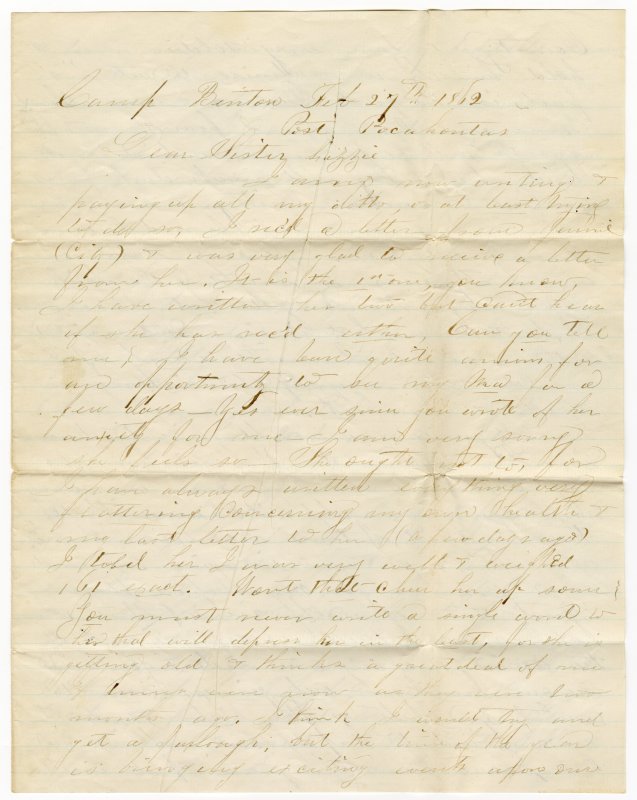 Camp Benton Feb 27th 1862
Post Pocahontas
Dear Sister Lizzie
I am now writing &
paying up all my debts, or at least trying
to do so, I rec'd a letter from Jennie
(Cit) & was very glad to receive a letter
from her. It is the 1st one, you know,
I have written her two but can't hear
if she has rec'd either, Can you tell
me? I have been quite anxious for
an opportunity to see my Ma for a
few days - Yes ever since you wrote of her
anxiety for me - I am very sorry
she feels so - She ought not to, for
I have always written everything very
flattering concerning my own health &
my last letter to her (a few days ago)
I told her I was very well & weighed
161 exact. Wont that cheer her up some?
You must never write a single word to
her that will depress her in the least, for she is
getting old & thinks a great deal of me
now as there were two
months ago. I think I would try and
get a furlough, but the time of the year
is bringing exciting events upon our